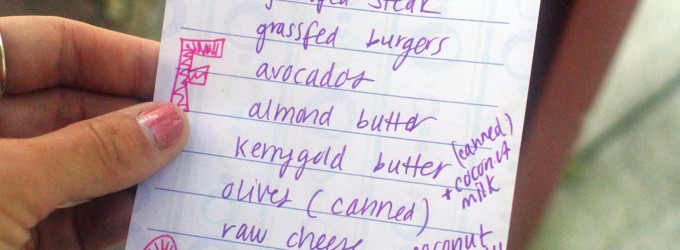 steak
grassfed burgers
F avocados
almond butter
kerrygold butter (canned)
+ coconut
milk
olives (canned)
raw cheese coconut